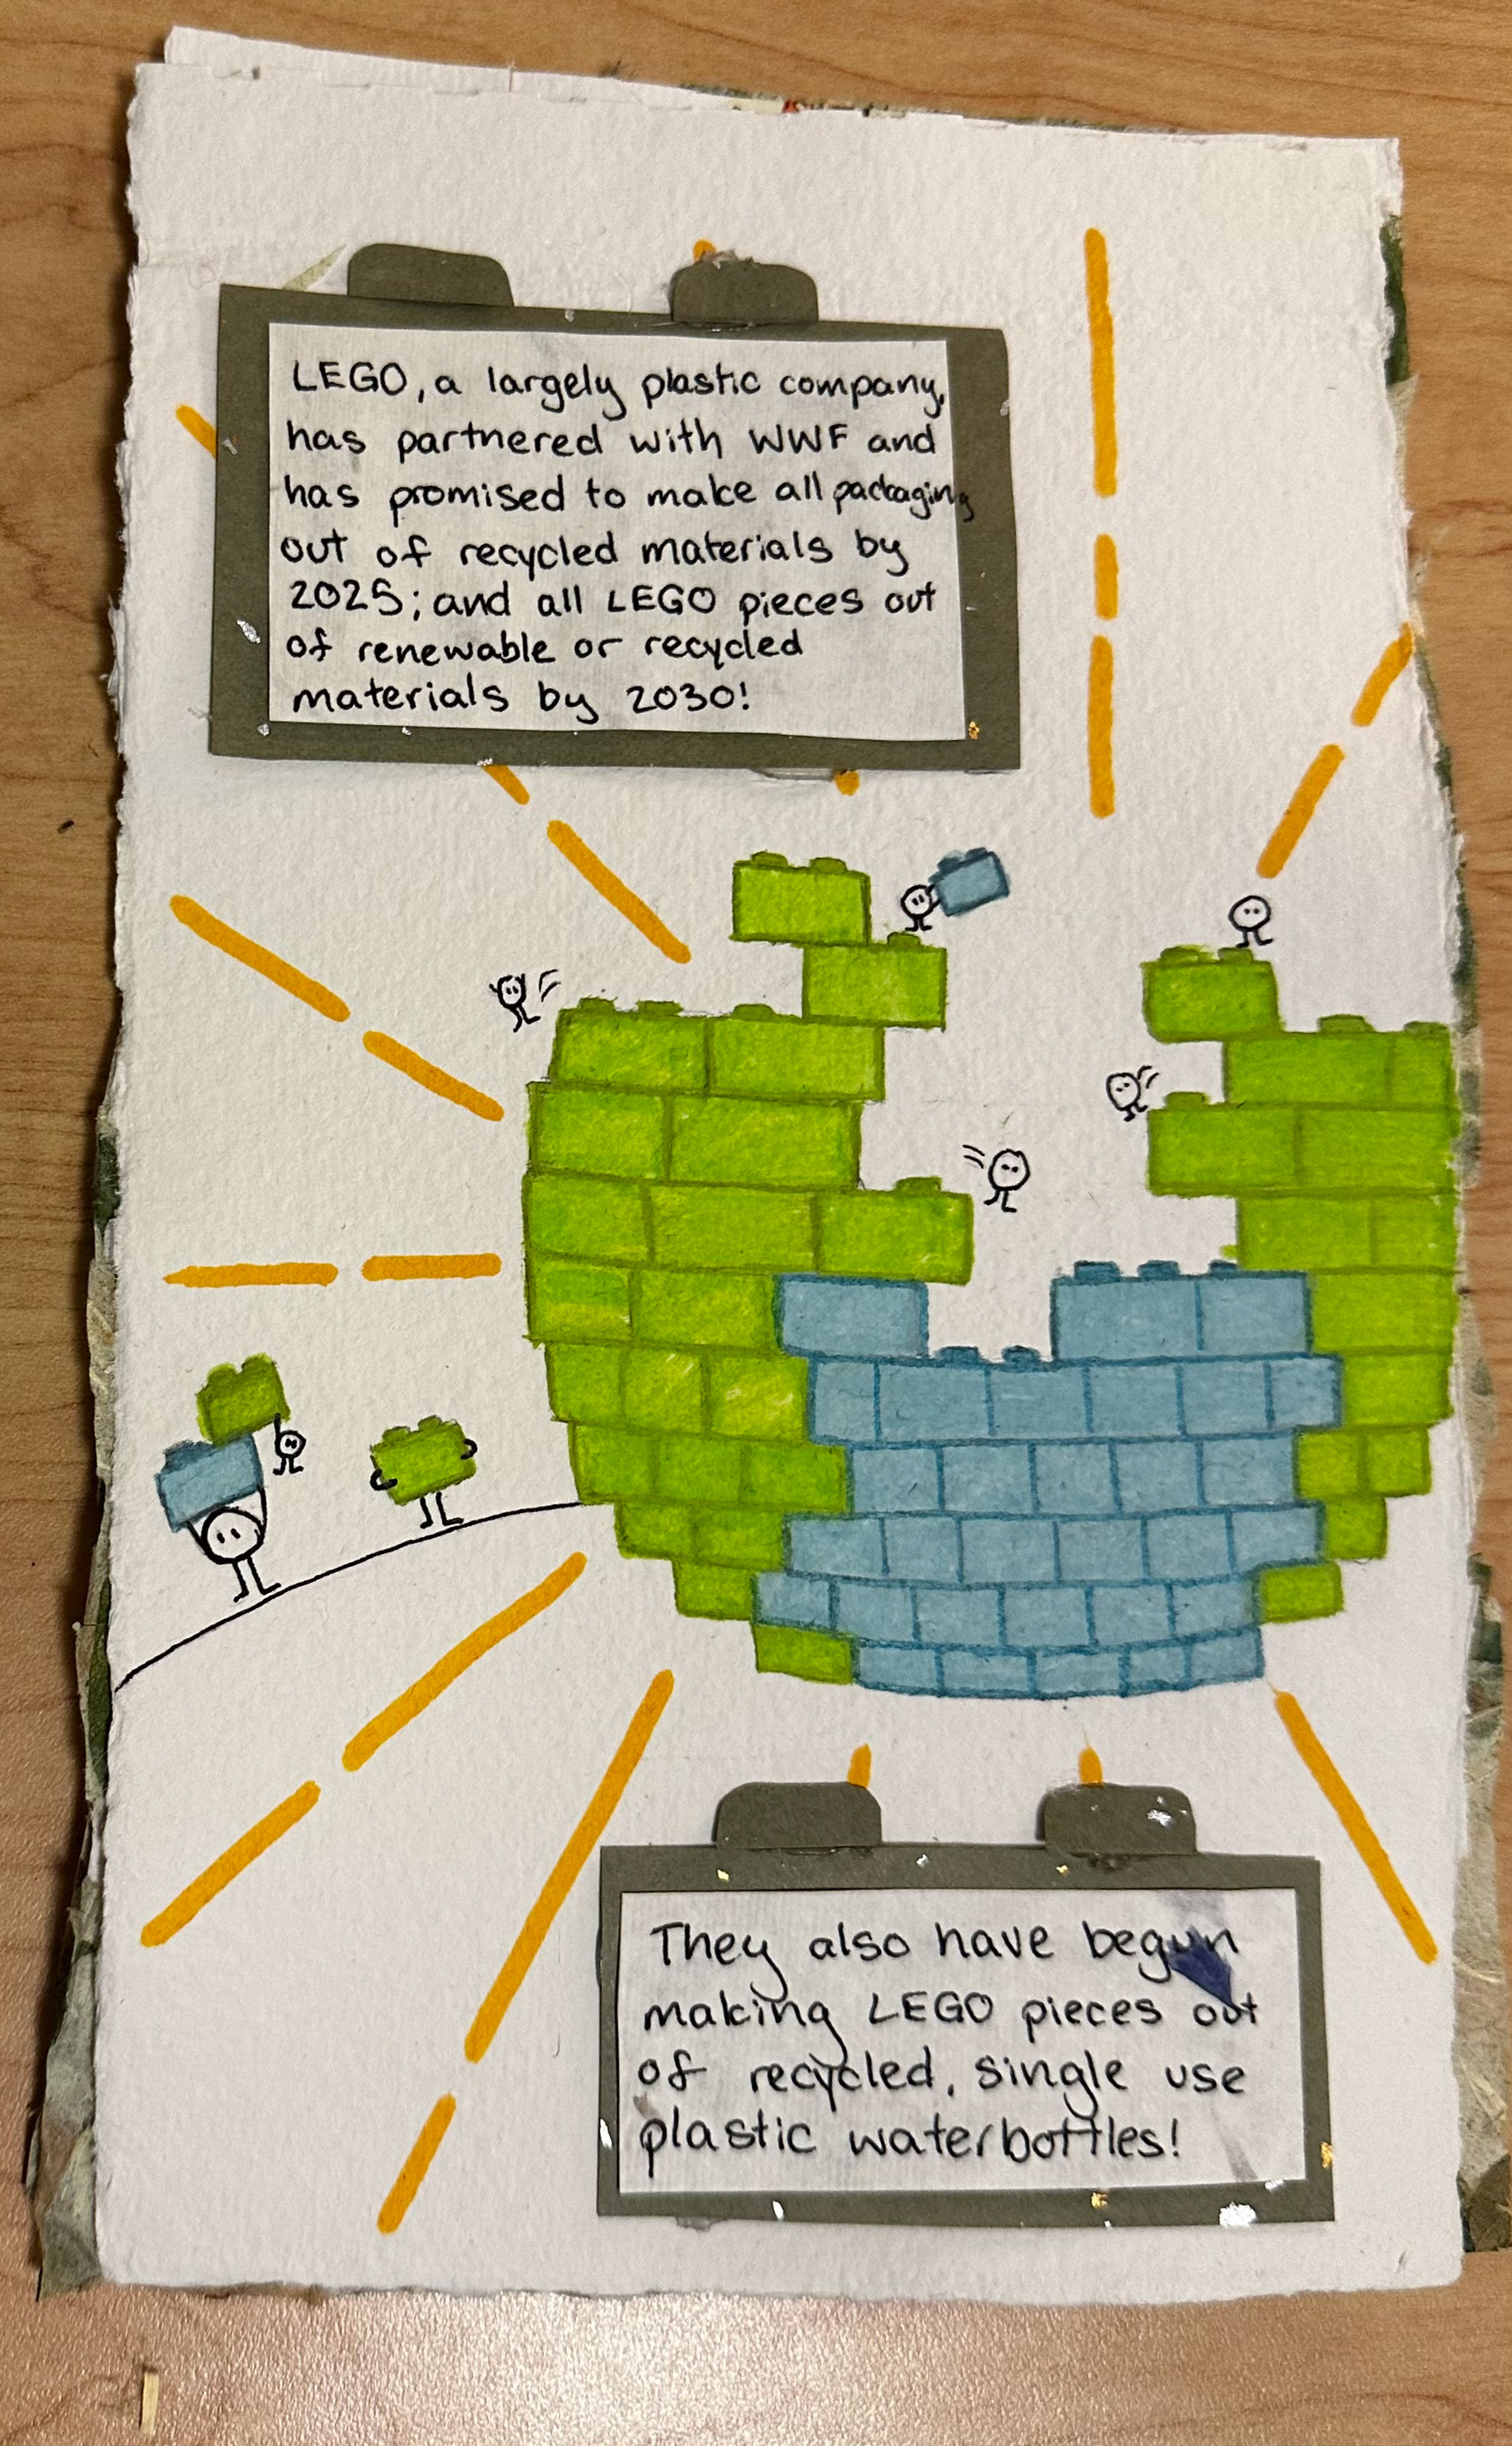 LEGO, a largely plastic company,
has partnered with WWF and
has promised to make all packaging
out of recycled materials by
2025; and all LEGO pieces out
of renewable or recycled
materials by 2030!
They also have begun
making LEGO pieces out
of recycled, single use
plastic waterbottles!